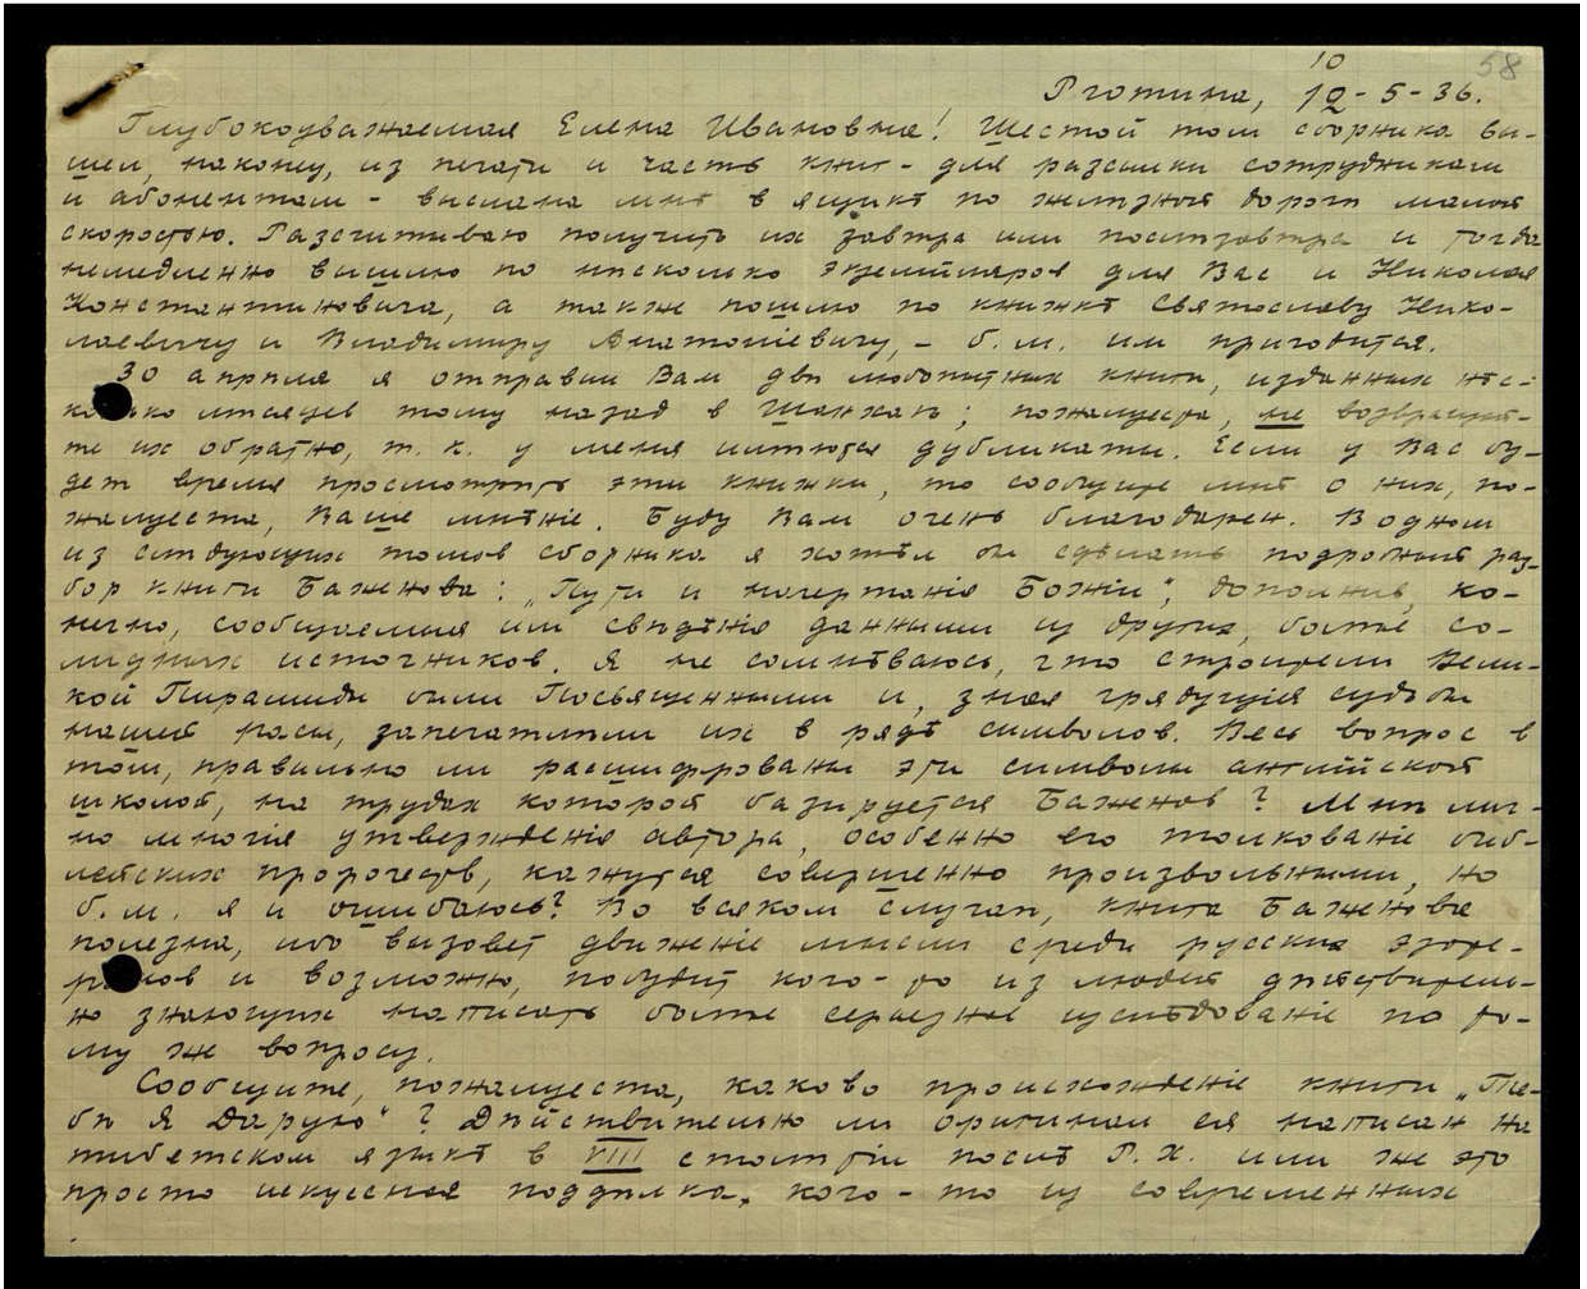 10 58
Рготина, 12-5-36.
Глубокоуважаемая Елена Ивановна! Шестой том сборника вы-
шел, наконец, из печати и часть книг - для разсылки сотрудникам
и абонентам - выслана мнѣ в ящикѣ по желѣзной дороге малой
скоростью. Разсчитываю получить их завтра или послѣзавтра и тогда
немедленно вышлю по нѣсколько экземпляров для Вас и Николая
Константиновича, а также пошлю по книжкѣ Святославу Нико-
лаевичу и Владимиру Анатоліевичу, - б.м. им пригодится.
30 апрѣля я отправил Вам двѣ любопытных книги, изданных нѣс-
колько мѣсяцев тому назад в Шанхаѣ; пожалуйста, не возвращай-
те их обратно, т.к. у меня имѣются дубликаты. Если у Вас бу-
дет время просмотрѣть эти книжки, то сообщите мнѣ о них, по-
жалуйста, Ваше мнѣніе. Буду Вам очень благодарен. В одном
из слѣдующих томов сборника я хотѣл бы сдѣлать подробный раз-
бор книги Баженова: „Пути и начертанія Божіи", дополнив, ко-
нечно, сообщаемыя им свѣдѣнія данными из других, болѣе со-
лидных источников. Я не сомнѣваюсь, что строители Вели-
кой Пирамиды были Посвященными и, зная грядущія судьбы
нашей расы, запечатлѣли их в рядѣ символов. Весь вопрос в
том, правильно ли расшифрованы эти символы англійской
школой, на трудах которой базируется Баженов? Мнѣ лич-
но многія утвержденія автора, особенно его толкованіе биб-
лейских пророчеств, кажутся совершенно произвольными, но
б.м. я и ошибаюсь? Во всяком случаѣ, книга Баженова
полезна, ибо вызовет движеніе мысли среди русских эзоте-
риков и возможно, побудит кого-то из людей дѣйствитель-
но знающих написать болѣе серьезное изслѣдованіе по то-
му же вопросу.
Сообщите, пожалуйста, каково происхожденіе книги „Те-
бѣ Я Дарую"? Дѣйствительно ли оригинал ея написан на
тибетском языкѣ в VIII столѣтіи послѣ Р.Х. или же это
просто искусная поддѣлка, кого-то из современных